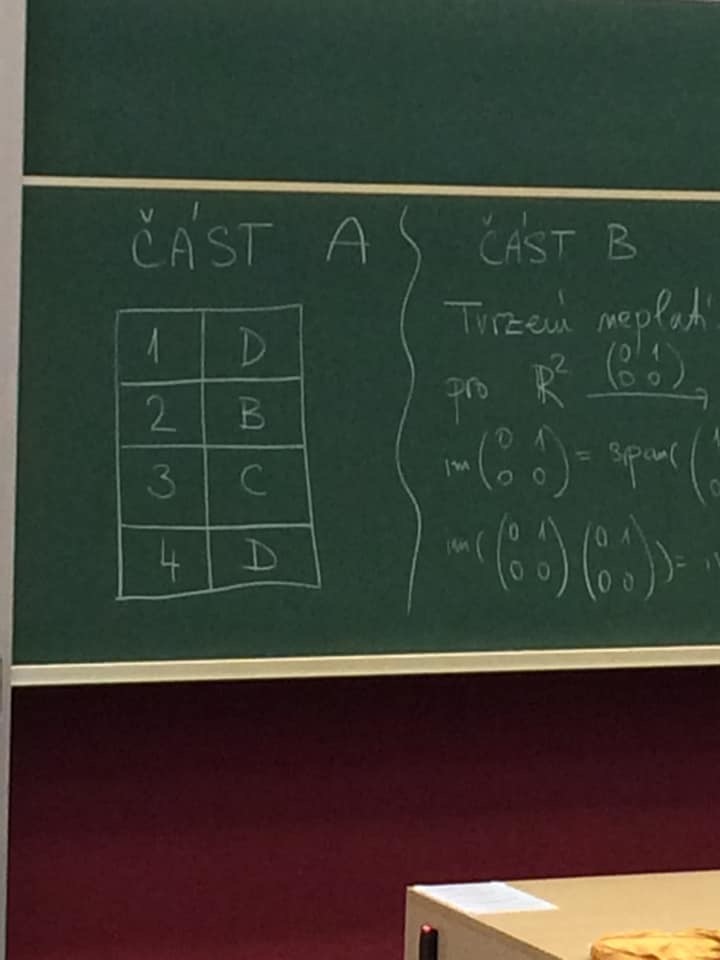 ČÁST A
1 D
2 B
3 C
4 D
ČÁST B
Tvrzení neplatí
pro ℝ² (0 1
0 0) →
im (0 1
0 0) = span(
im( (0 1
0 0) (0 1
0 0) ) =